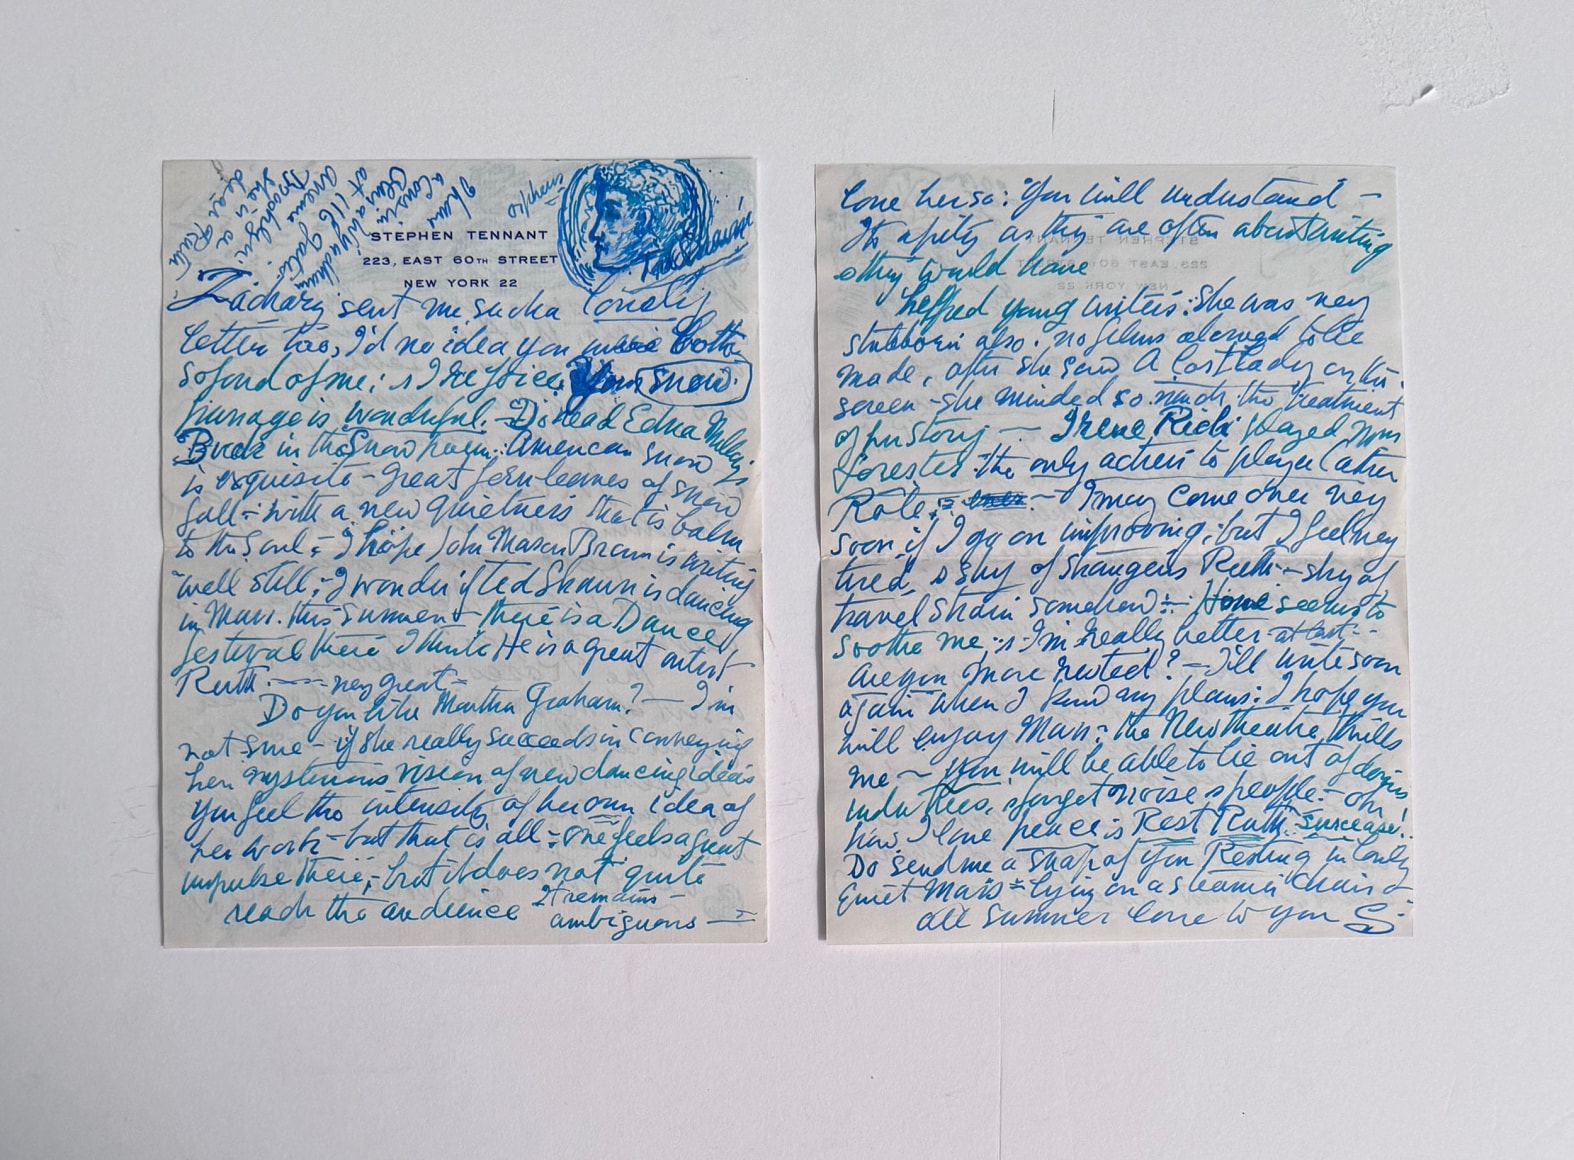 I have
a cousin:
at 116 Gates
Avenue
Brooklyn
she is a
dear Ruth
Stephen
STEPHEN TENNANT
223, EAST 60TH STREET
NEW YORK 22
Zachary sent me such a lovely
letter too, I'd no idea you were both
so fond of me; & I rejoice. Your snow
passage is wonderful. Do read Edna Millay's
Buck in the Snow poem: American snow
is exquisite – great fern leaves of snow
fall – with a new quietness that is balm
to the soul, – I hope John Mason Brown is writing
well still; – I wonder if Ted Shawn is dancing
in Mass. this summer – there is a Dance
festival there I think He is a great artist
Ruth. – very great –
Do you like Martha Graham? – I'm
not sure – if she really succeeds in conveying
her mysterious vision of new dancing ideas
you feel the intensity of her own idea of
her work – but that is all – one feels a great
impulse there, – but it does not quite
reach the audience It remains –
ambiguous –
love her so: You will understand –
Its a pity as they are often about writing
& they would have
helped young writers: She was very
stubborn also. no films allowed to be
made, after she saw A Lost Lady on the
screen – she minded so much, the treatment
of her story – Irene Rich played Mrs
Forester – the only actress to play a Cather
Role. – I may come over very
soon, if I go on improving; but I feel very
tired, & shy of strangers Ruth – shy of
travel strain somehow – Home seems to
soothe me; & I'm really better – at last –
Are you more rested? – I'll write soon
again when I know my plans: I hope you
will enjoy Mass: – the New theatre, thrills
me – you will be able to lie out of doors
under trees, & forget noise & people. – Oh
how I love peace & Rest Ruth. Surcease!
Do send me a snap of you Resting in lovely
Quiet Mass – lying on a steamer chair –
all summer love to you S –